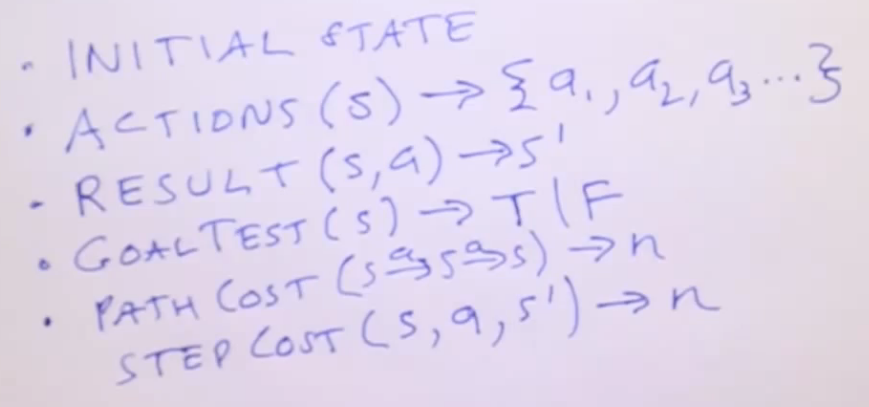 • INITIAL STATE
• ACTIONS (s) → {a1, a2, a3 ...}
• RESULT (s, a) → s'
• GOALTEST (s) → T | F
• PATH COST (s a→ s a→ s) → n
STEP COST (s, a, s') → n